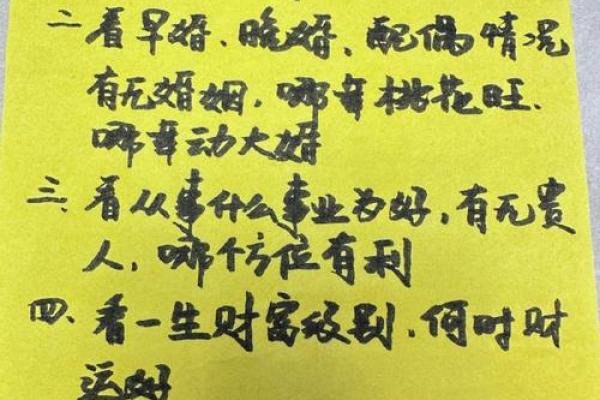 二看早婚、晚婚、配偶情况
有无婚姻，哪年桃花旺、
哪年动大婚
三、看从事什么事业为好，有无贵
人，哪个方位有利
四、看一生财富级别，何时财
运好